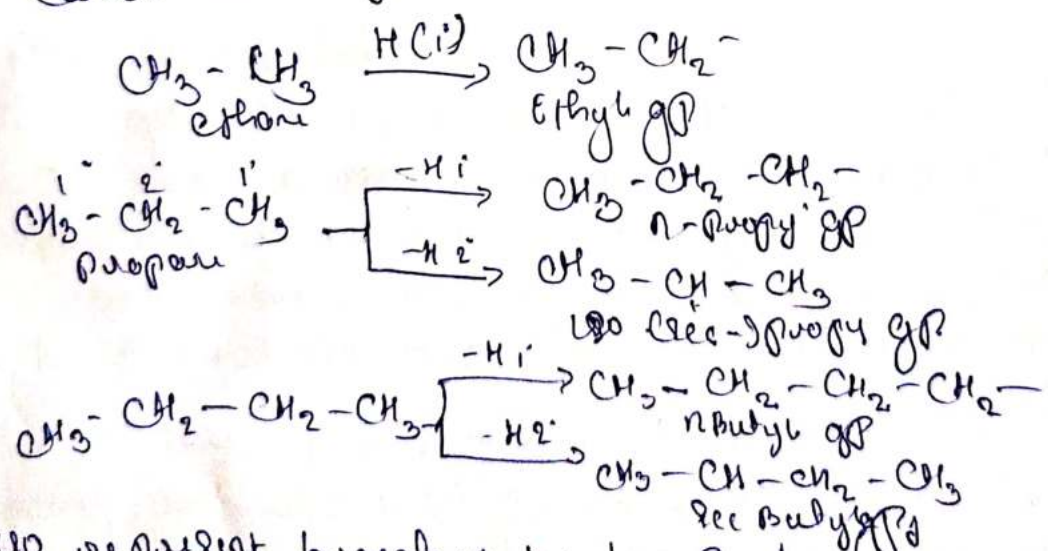 CH3 - CH3 H(1°) CH3 - CH2 -
ethane Ethyl gp
1° 2° 1° -H 1° CH3 - CH2 - CH2 -
CH3 - CH2 - CH3 n-propyl gp
propane -H 2° CH3 - CH - CH3
iso (sec-) propyl gp
-H 1° CH3 - CH2 - CH2 - CH2 -
CH3 - CH2 - CH2 - CH3 n Butyl gp
-H 2° CH3 - CH - CH2 - CH3
sec Butyl gp